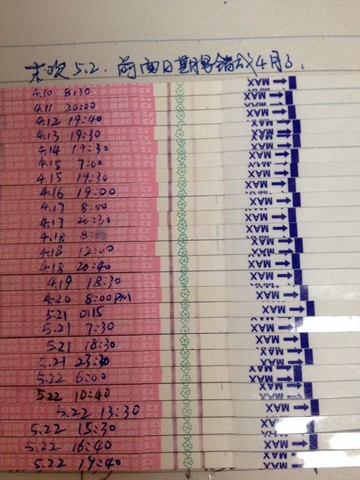 末次5.2.前面日期写错成4月了.
4.10 8:30 MAX
4.11 20:00 MAX
4.12 19:40 MAX
4.13 19:30 MAX
4.14 19:30 MAX
4.15 7:00 MAX
4.15 19:30 MAX
4.16 19:00 MAX
4.17 8:00 MAX
4.17 20:30 MAX
4.18 MAX
4.18 12:00 MAX
4.18 20:40 MAX
4.19 18:30 MAX
4.20 8:00PM MAX
5.21 0:15 MAX
5.21 7:30 MAX
5.21 18:30 MAX
5.21 23:30 MAX
5.22 6:00 MAX
5.22 10:40 MAX
5.22 13:30 MAX
5.22 15:30 MAX
5.22 16:40 MAX
5.22 19:40 MAX